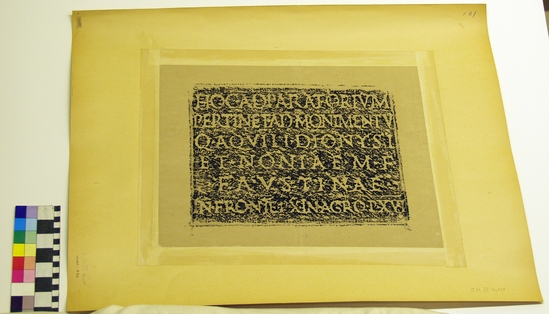 HOC APPARATORIVM
PERTINET AD MONIMENTV
Q AQVILI DIONYSI
ET NONIAE M F
FAVSTINAE
IN FRONTE P XI IN AGRO P XV